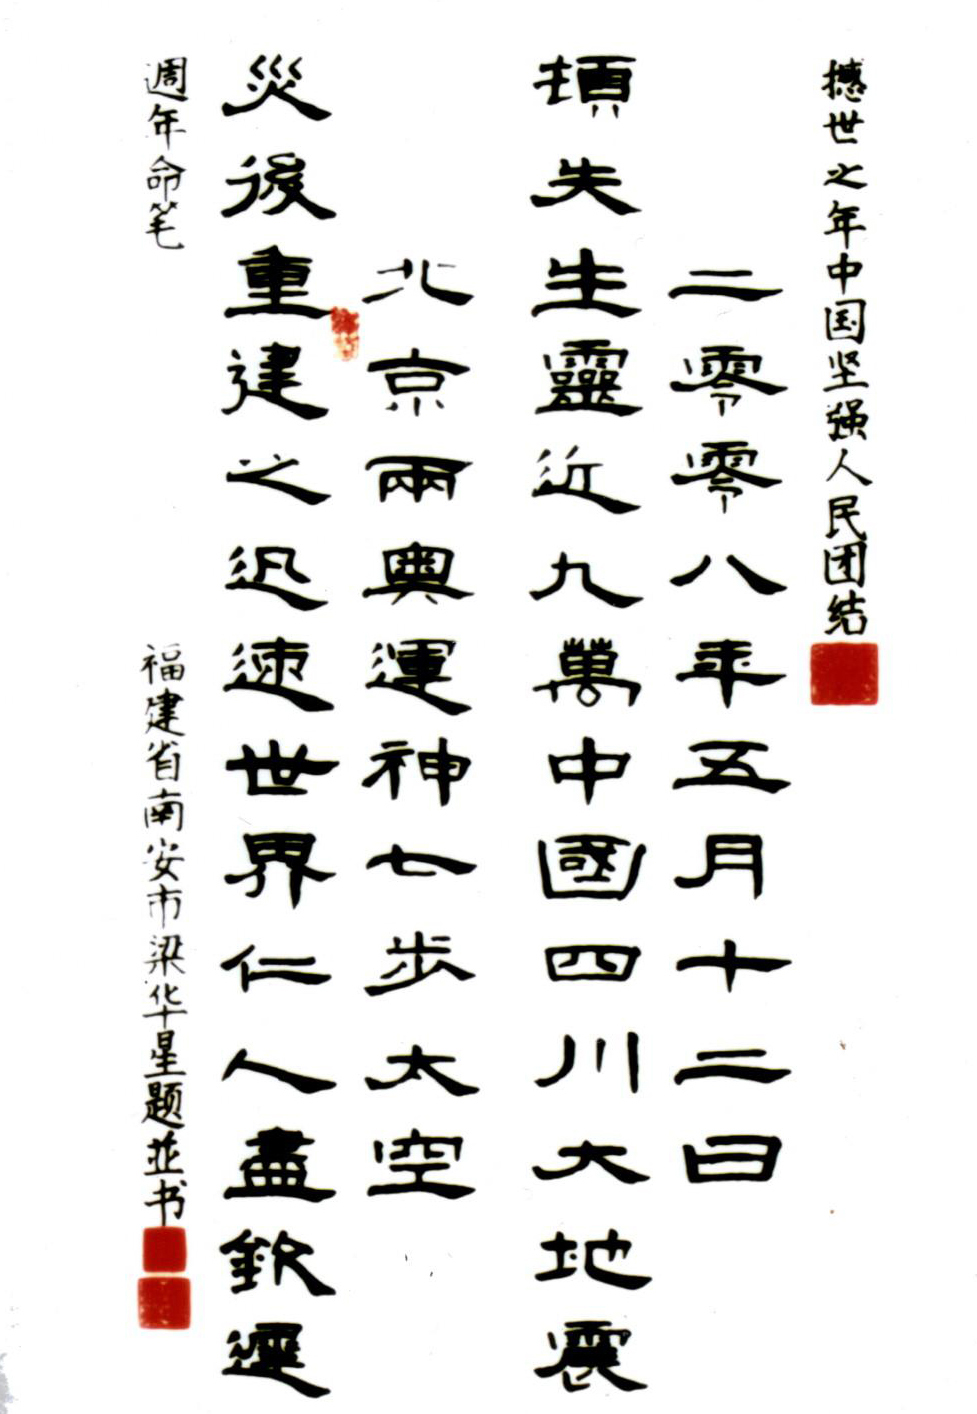 撼世之年中国坚强人民团结
二零零八年五月十二日
損失生靈近九萬中國四川大地震
北京兩奧運神七步太空
災後重建之迅速世界仁人盡欽遲
週年命笔
福建省南安市梁华星题並书